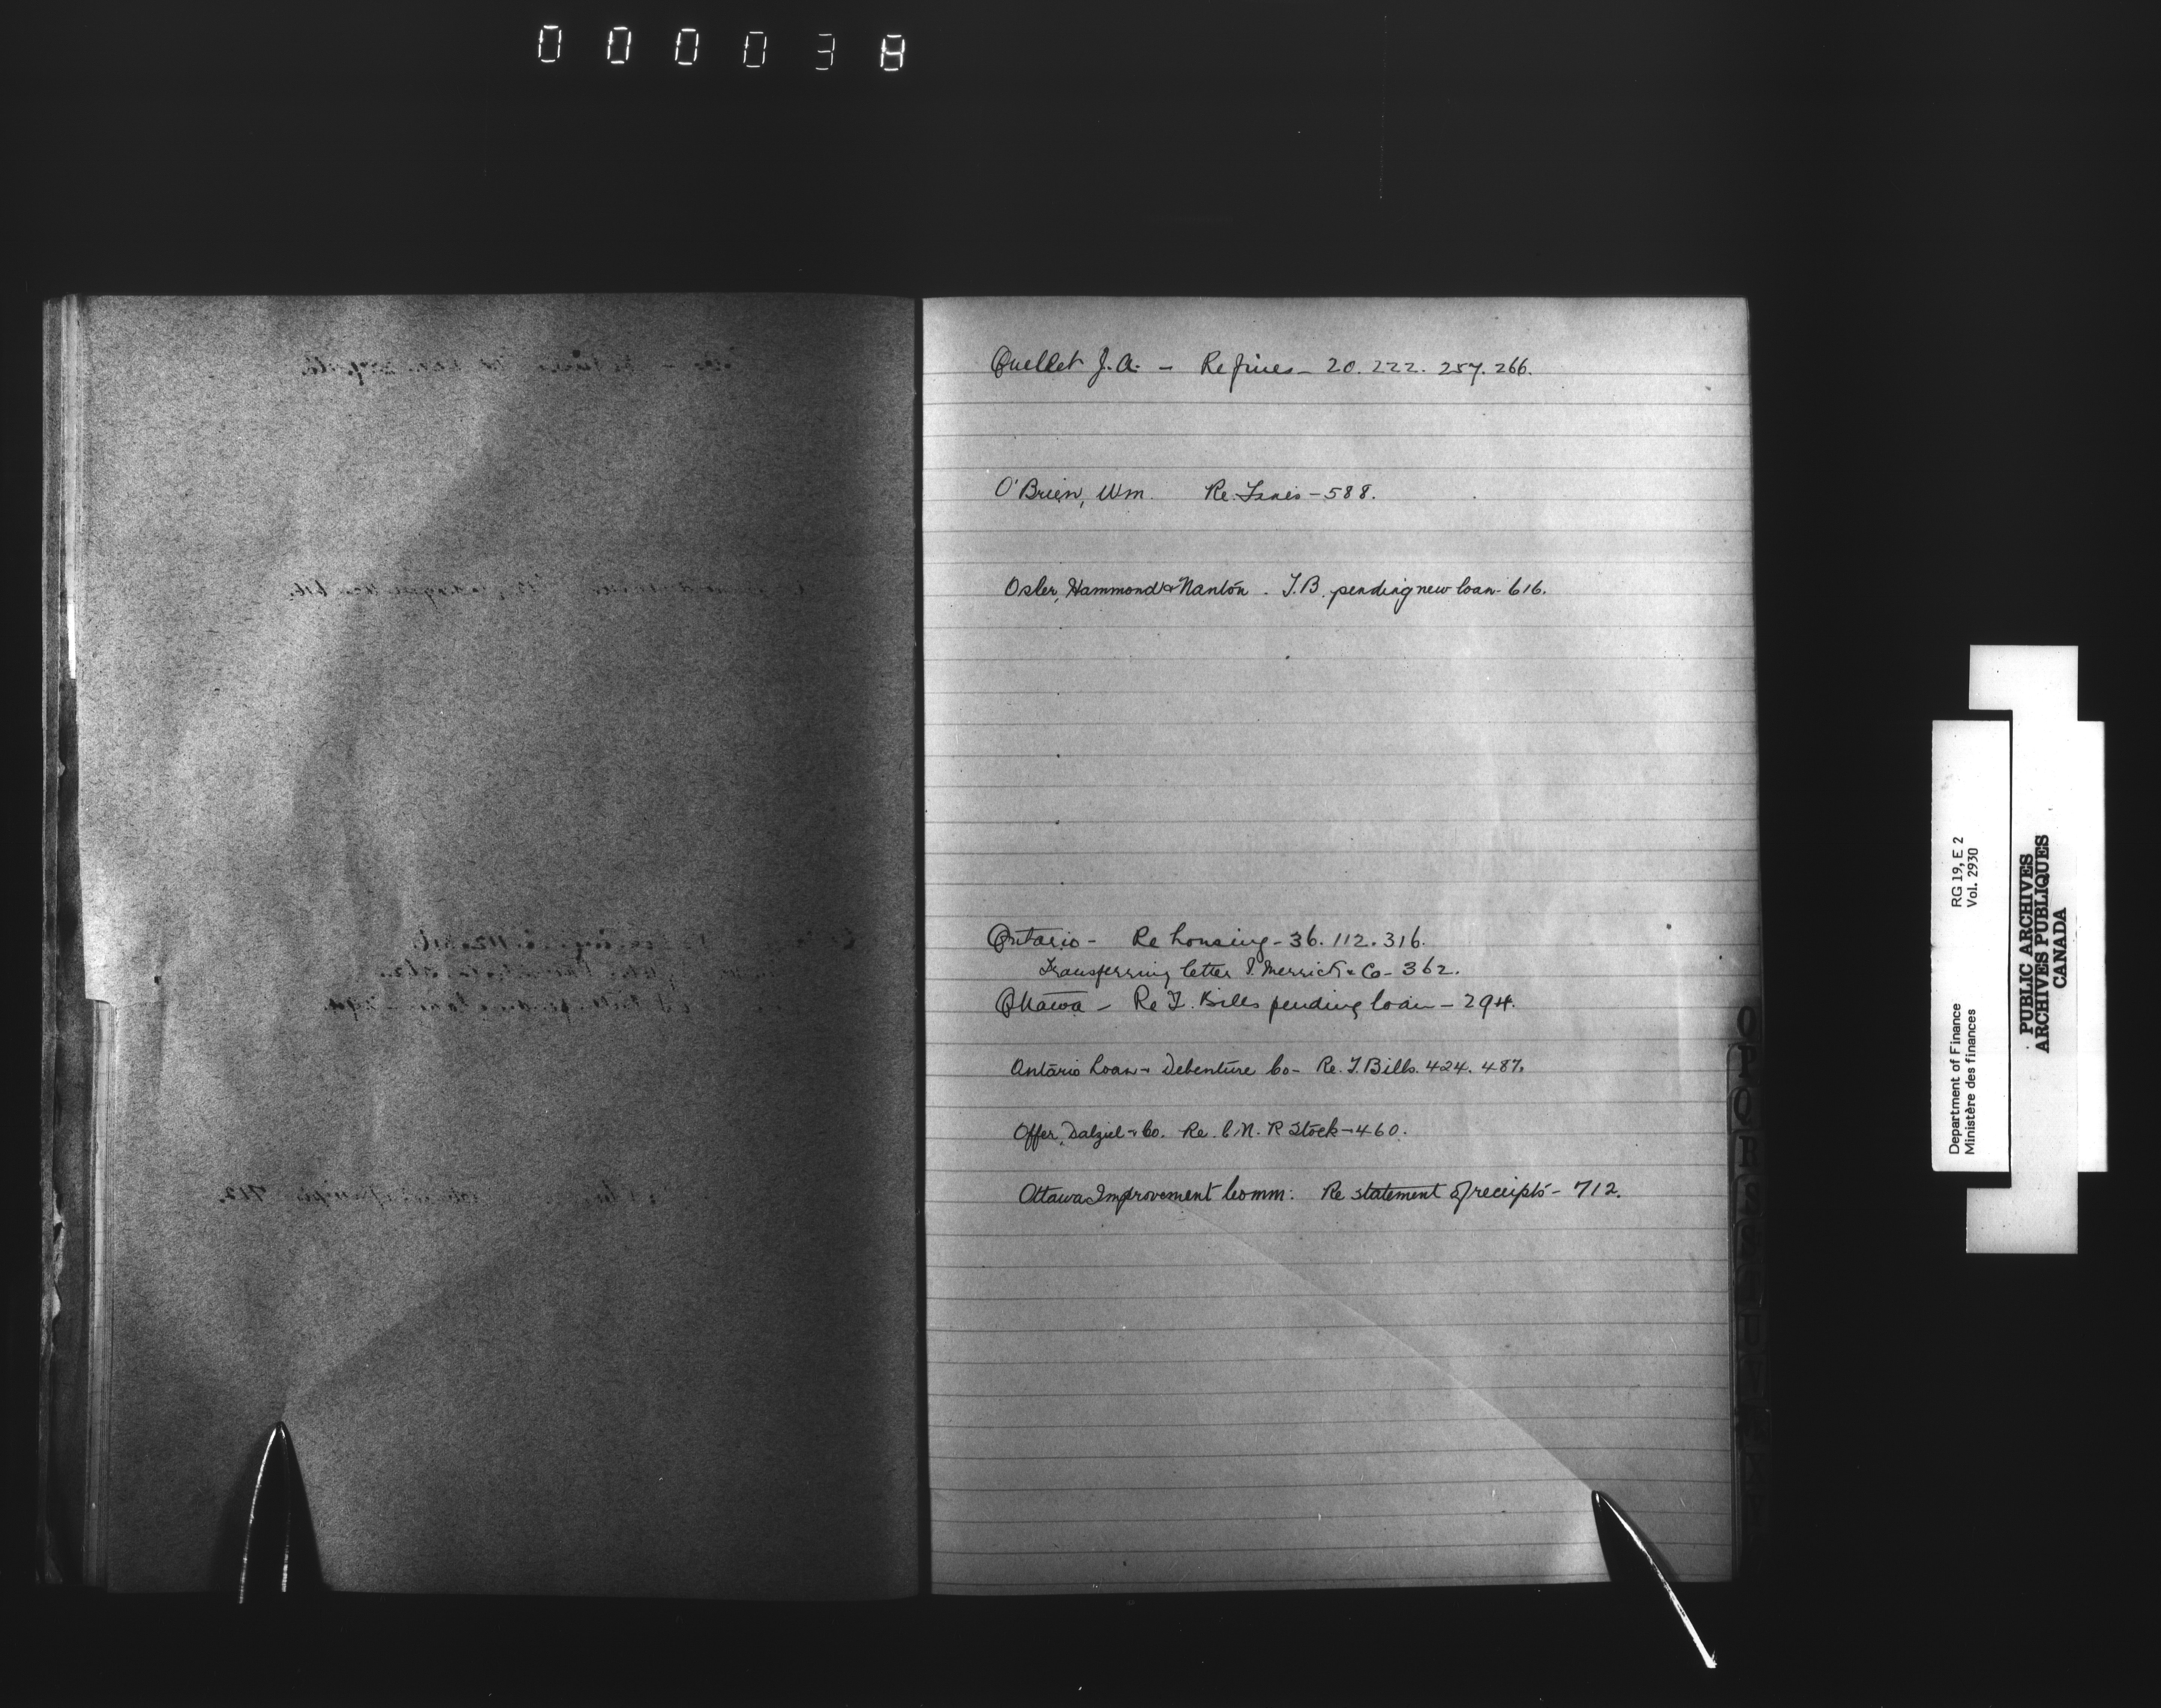 000038
Ouellet J. A. - Re fines - 20. 222. 257. 266.
O'Brien, Wm. Re. - 588.
Osler, Hammond & Nanton. T.B. pending new loan - 616.
Ontario - Re housing - 36. 112. 316.
Transferring letter Merrick & Co - 362.
Ottawa - Re T. Bills pending loan - 294.
Ontario Loan & Debenture Co - Re. T. Bills. 424. 487.
Offer, Dalziel & Co. Re. C.N.R Stock - 460.
Ottawa Improvement Comm: Re statement of receipts - 712.
Department of Finance RG 19, E 2
Ministère des finances Vol. 2930
PUBLIC ARCHIVES
ARCHIVES PUBLIQUES
CANADA